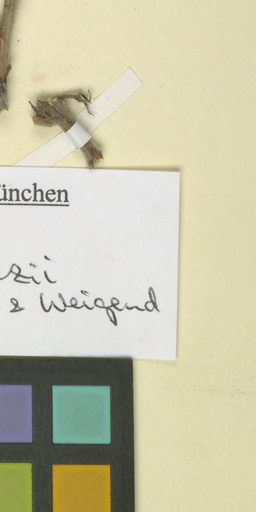 ünchen
zii
& Weigend